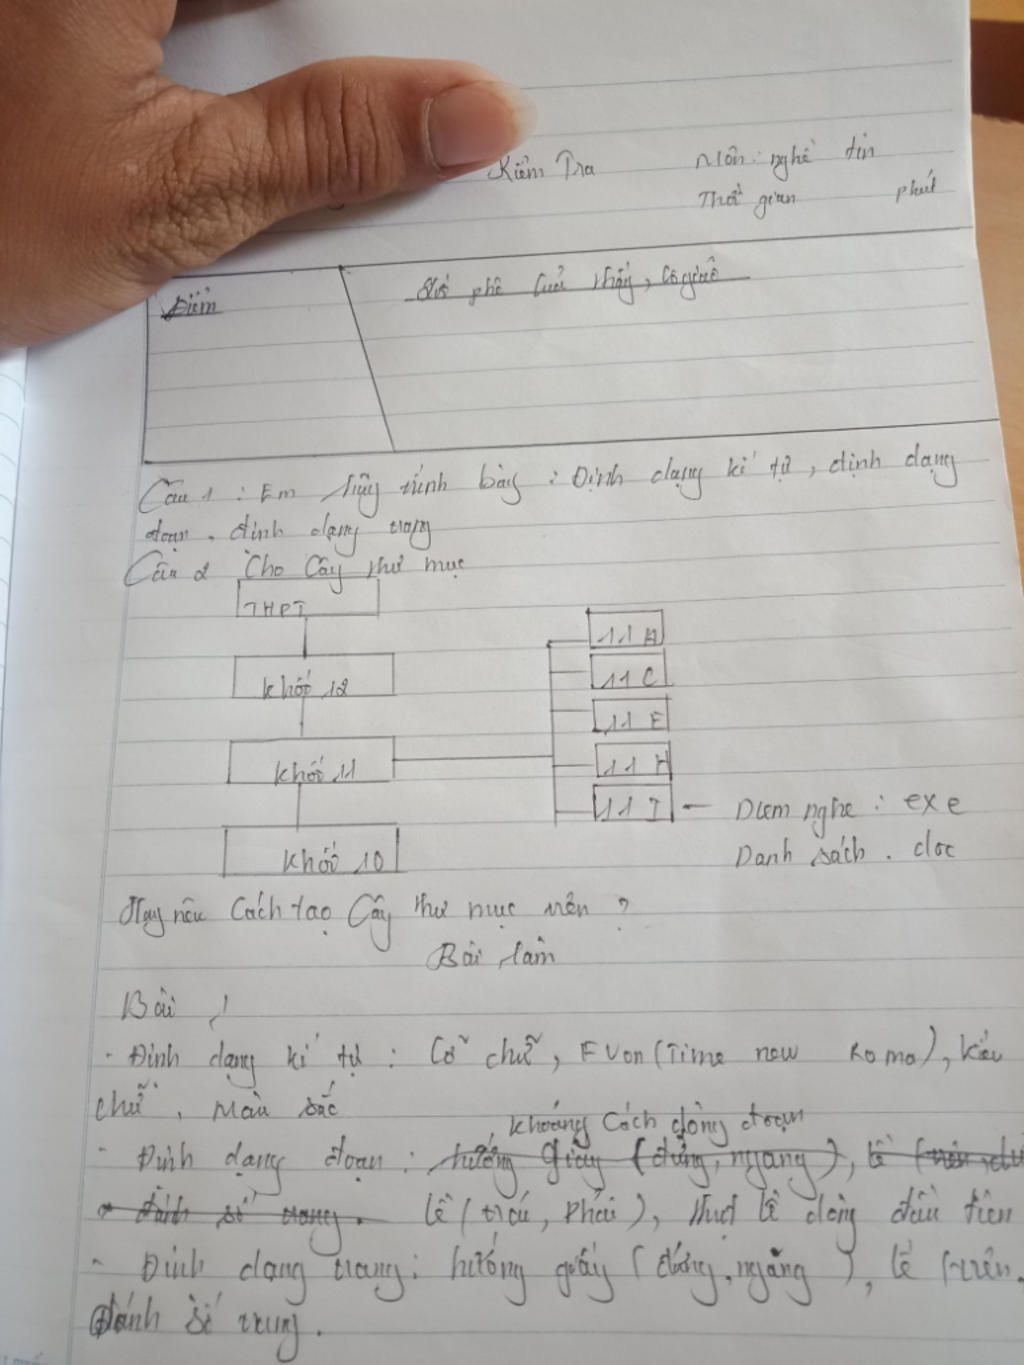 Kiểm Tra Môn: nghề tin
Thời gian phút
Điểm
phê của thầy, cô giáo
Câu 1: Em hãy trình bày: Định dạng kí tự, định dạng
đoạn, định dạng trang
Câu 2 Cho Cây thư mục
THPT
Khối 12
Khối 11
Khối 10
11 A
11 C
11 E
11 H
11 I - Diem nghe: exe
Danh sách. doc
Hay nêu Cách tạo Cây thư mục trên?
Bài làm
Bài 1
- Định dạng kí tự: Cỡ chữ, Fvon (Time new Roma), kiểu
chữ, Màu sắc
, khoảng Cách dòng đoạn
- Định dạng đoạn: hướng giấy (đứng, ngang), lề (trên,
đánh số trang. lề (trái, phải), thụt lề dòng đầu tiên
- Định dạng trang: hướng giấy (đứng, ngang), lề (trên.
đánh số trang.